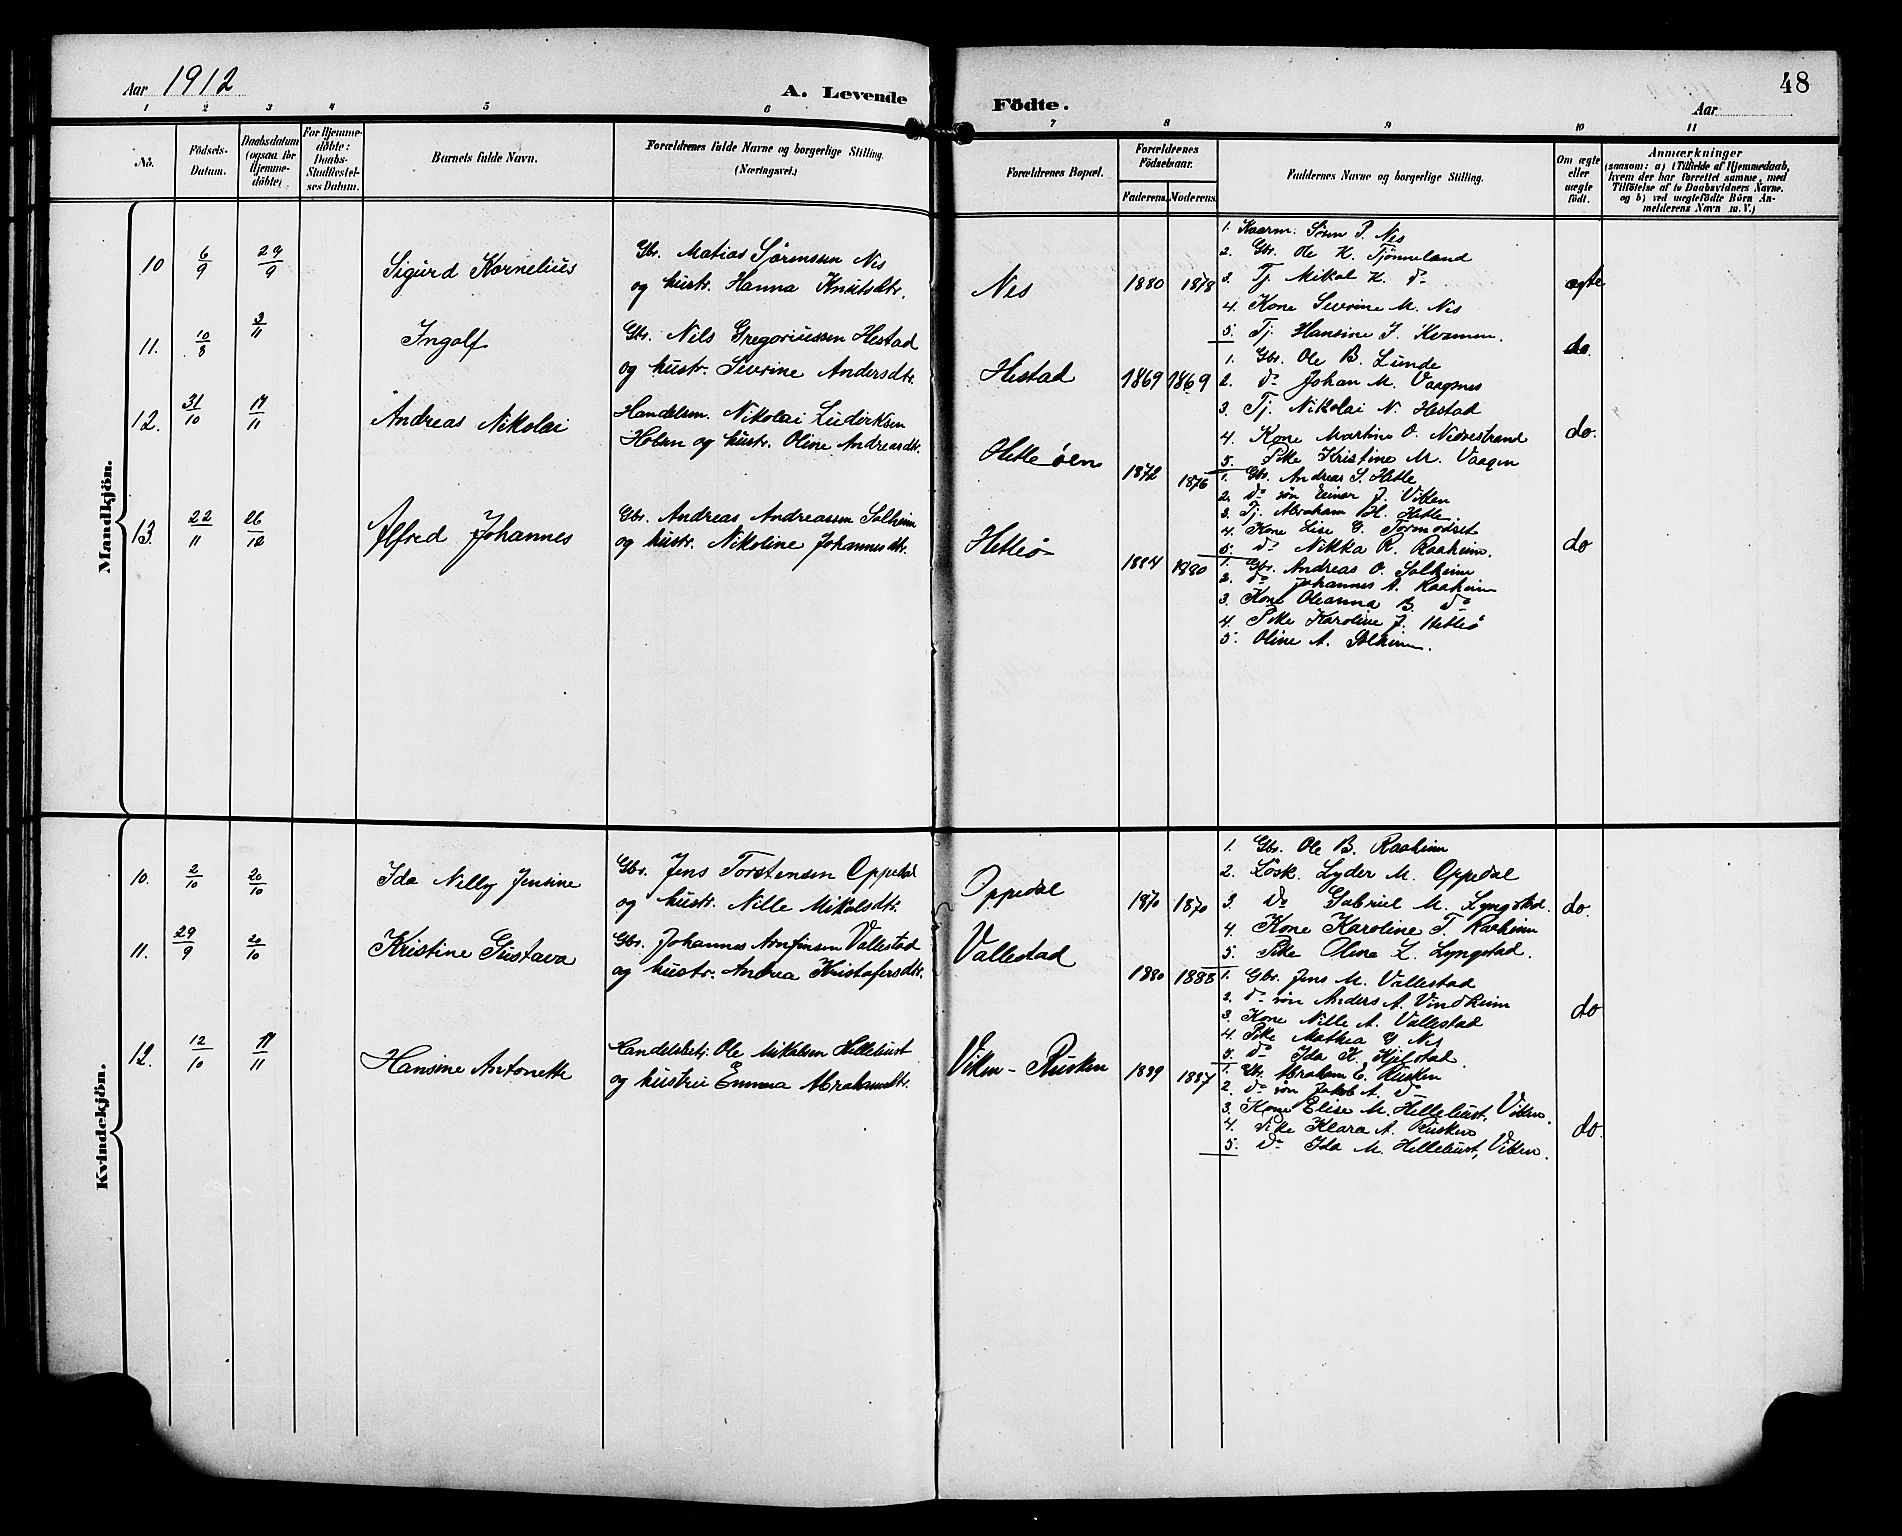 Aar 1912
A. Levende
Födte.
Aar
48
1 2 3 4 5 6 7 8 9 10 11
No.
Födsels-Datum.
Daabsdatum (ogsaa for Hjemmedöbte)
For Hjemmedöbte: Daabs-Stadfæstelses Datum.
Barnets fulde Navn.
Forældrenes fulde Navne og borgerlige Stilling. (Næringsvei.)
Forældrenes Bopæl.
Forældrenes Födselsaar.
Faderens. Moderens.
Faddernes Navne og borgerlige Stilling.
Om ægte eller uægte födt.
Anmærkninger
(saasom: a) i Tilfælde af Hjemmedaab, hvem der har forrettet samme, med Tilföielse af to Daabsvidners Navne. og b) ved uægtefödte Börn Anmelderens Navn m. V.)
Mandkjön.
10 6/9 29/9 Sigurd Kornelius
Gbr. Matias Sörenssen Nes
og hustr. Hanna Knutsdtr.
Nes 1880 1878
1. Kaarm. Sören P. Nes
2. Gbr. Ole K. Tjönneland
3. Tj. Mikal K. do
4. Kone Severine M. Nes
5. Tj. Hansine J. Kvamen.
ægte
11. 10/8 3/11 Ingolf
Gbr. Nils Gregoriussen Hestad
og hustr. Severine Andersdtr.
Hestad 1869 1869
1. Gbr. Ole B. Lunde
2. do Johan M. Vaagnes
3. Tj. Nikolai N. Hestad
4. Kone Martine O. Nedrestrand
5. Pike Kristine M. Vaagen
do.
12. 31/10 17/11 Andreas Nikolai
Handelsm. Nikolai Luderksen
og hustr. Oline Andreasdtr.
Hetleöen 1872 1876
1. Gbr. Andreas S. Hetle
2. do sön Einar J. Viken
3. Tj. Abraham H. Hetle
4. Kone Lise G. Tormodset
5. do Nikka R. Raaheim.
do.
13. 22/11 26/12 Alfred Johannes
Gbr. Andreas Andreassen Solheim
og hustr. Nikoline Johannesdtr.
Hetleö 1884 1880
1. Gbr. Andreas O. Solheim
2. do Johannes A. Raaheim
3. Kone Oleanna B. do
4. Pike Karoline J. Hetleö
5. Oline A. Solheim.
do
Kvindekjön.
10. 2/10 20/10 Ida Nilly Jensine
Gbr. Jens Torstensen Oppedal
og hustr. Nille Mikalsdtr.
Oppedal 1870 1870
1. Gbr. Ole B. Raaheim
2. Lösk. Lyder M. Oppedal
3. do Gabriel M. Lyngstad.
4. Kone Karoline T. Raaheim
5. Pike Olina L. Lyngstad.
do.
11. 29/9 20/10 Kristine Gustava
Gbr. Johannes Arnfinsen Vallestad
og hustr. Andrea Kristofersdtr.
Vallestad 1880 1888
1. Gbr. Jens M. Vallestad
2. do sön Anders A. Vindheim
3. Kone Nille A. Vallestad
4. Pike Mathea G Nes
5. do Ida K. Kjelstad.
do
12. 12/10 17/11 Hansine Antonette
Handelsbetj. Ole Mikalsen Hellebust
og hustru Emma Abrahamsdtr.
Viken - Rusken 1889 1887
1. Gbr. Abraham E. Rusken
2. do sön Jakob A. do
3. Kone Elise M. Hellebust, Viken.
4. Pike Klara A. Rusken
5. do Ida M. Hellebust, Viken.
do.